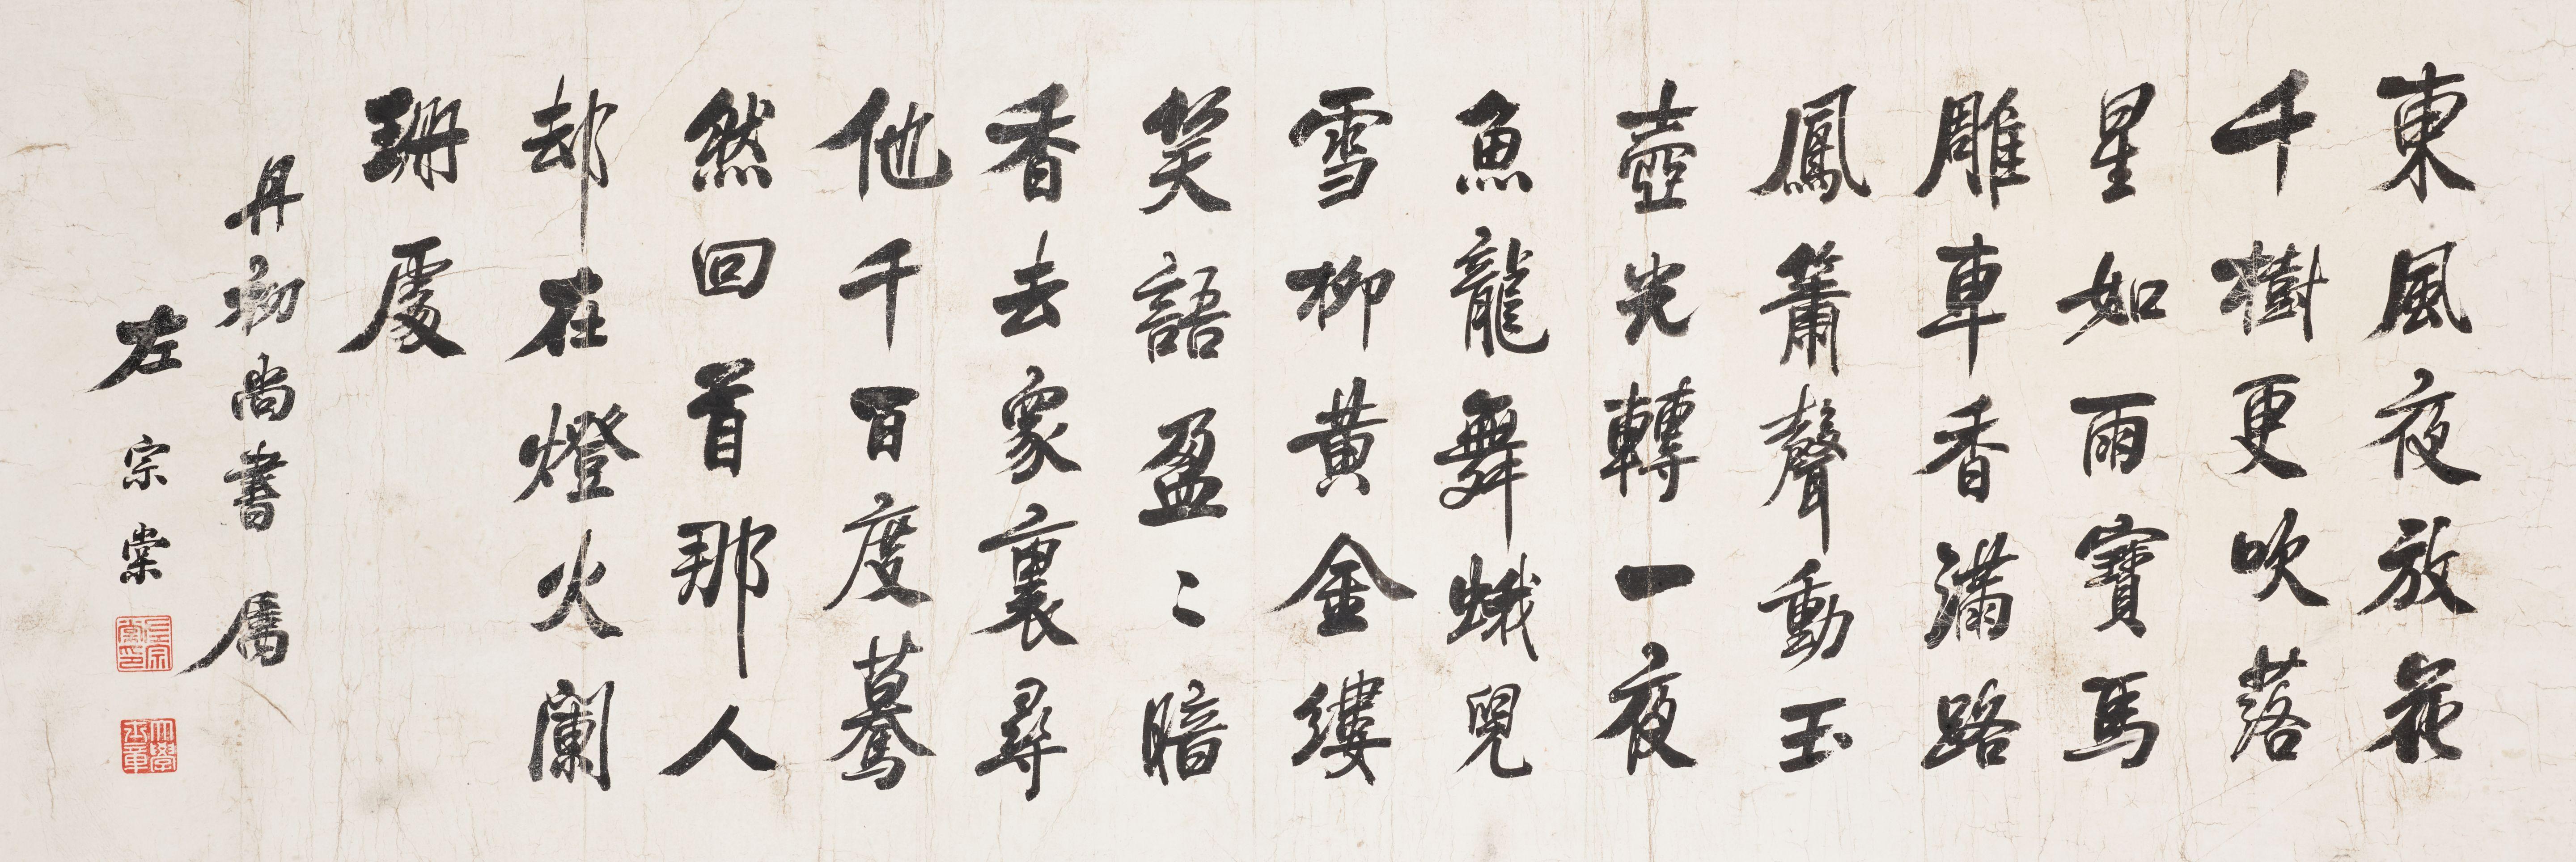 東風夜放花
千樹更吹落
星如雨寶馬
雕車香滿路
鳳簫聲動玉
壺光轉一夜
魚龍舞蛾兒
雪柳黃金縷
笑語盈〻暗
香去衆裏尋
他千百度驀
然回首那人
却在燈火闌
珊處
丹初尚書屬
左宗棠
左宗棠印
大學士章